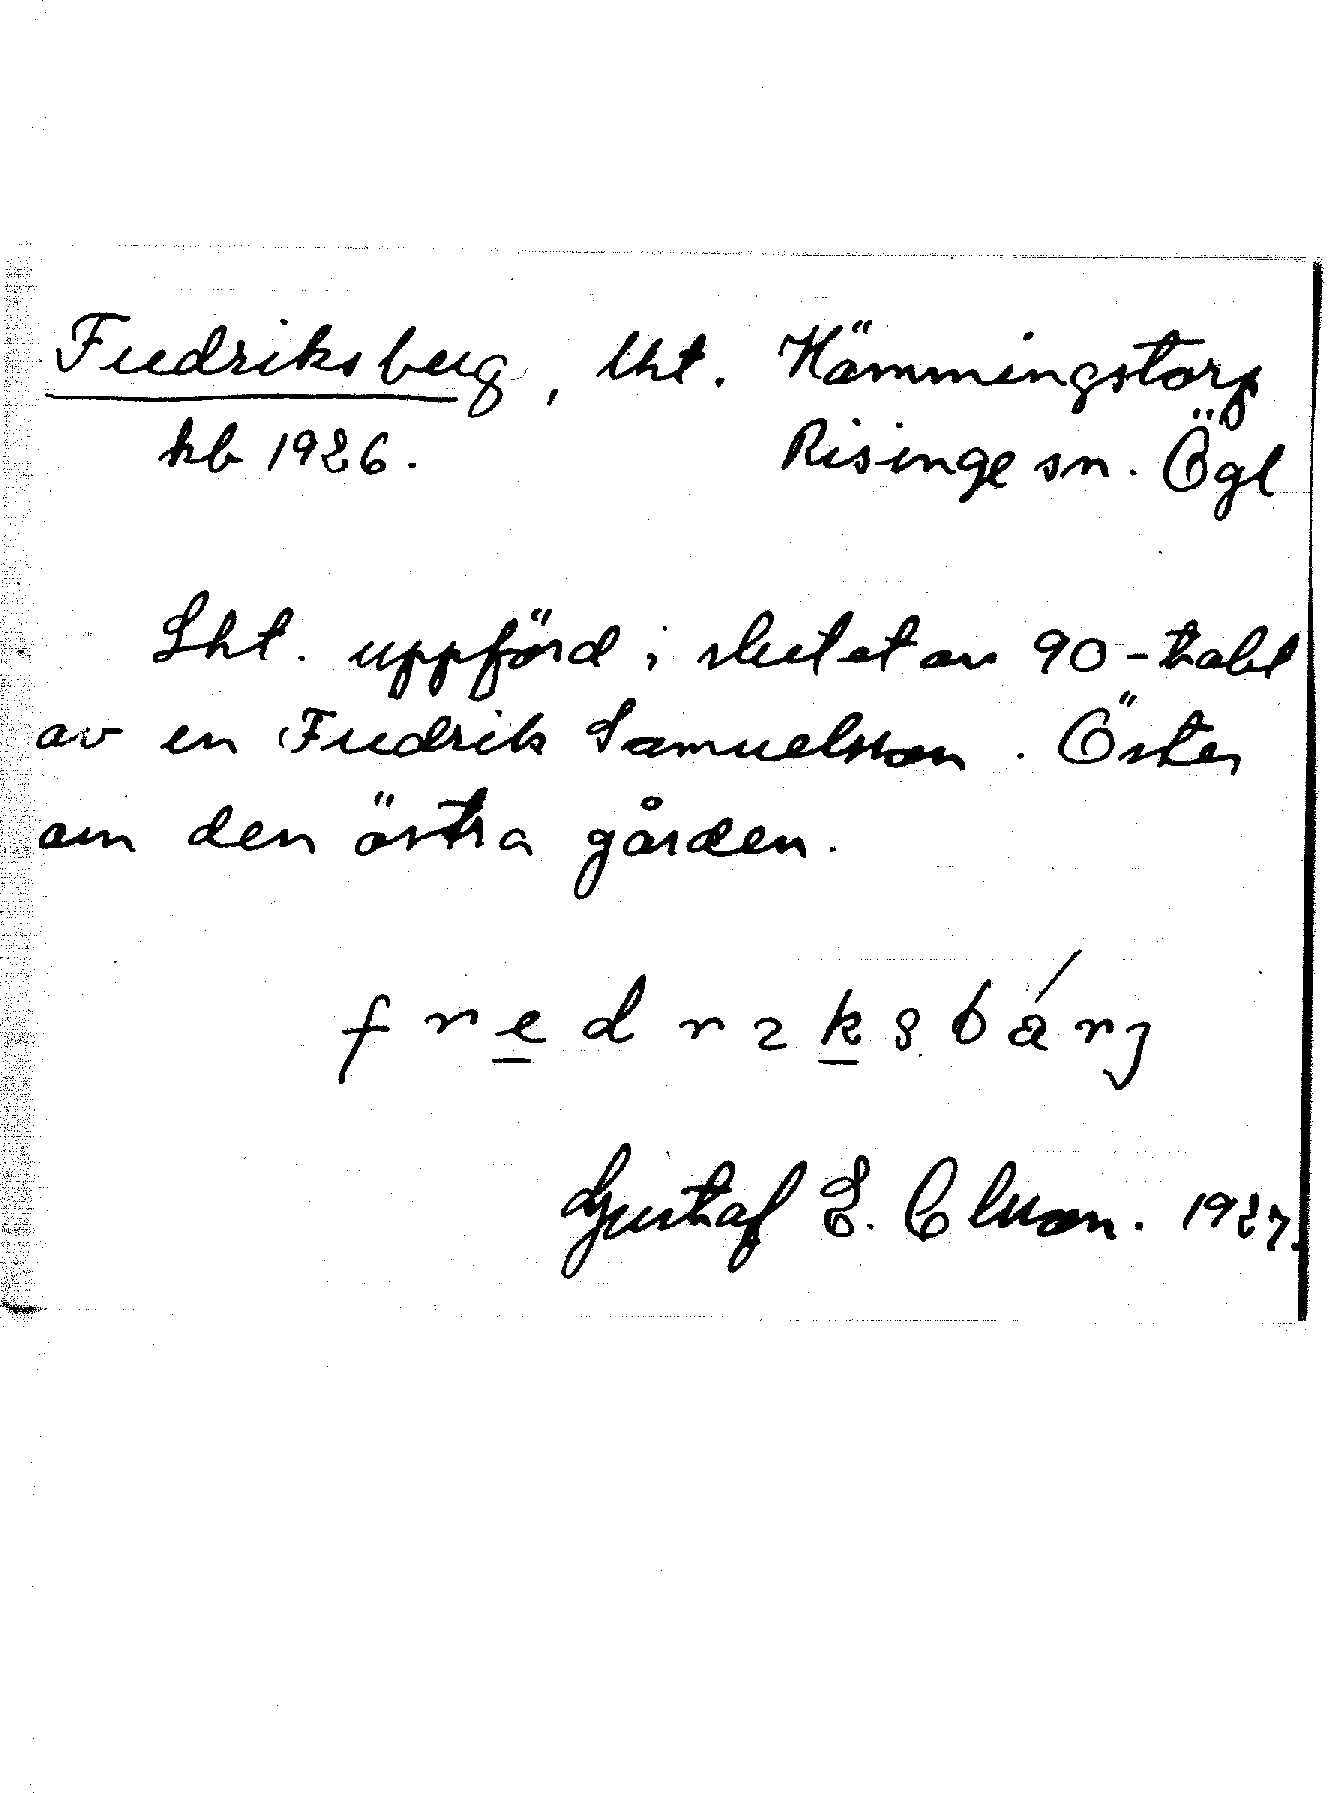 Fredriksberg, lht. Hämmingstorp
kb 1926. Risinge sn. Ögl
Lht. uppförd i slutet av 90-talet
av en Fredrik Samuelsson. Öster
om den östra gården.
fredrıksbárj
Gustaf E. Clsson. 1927.